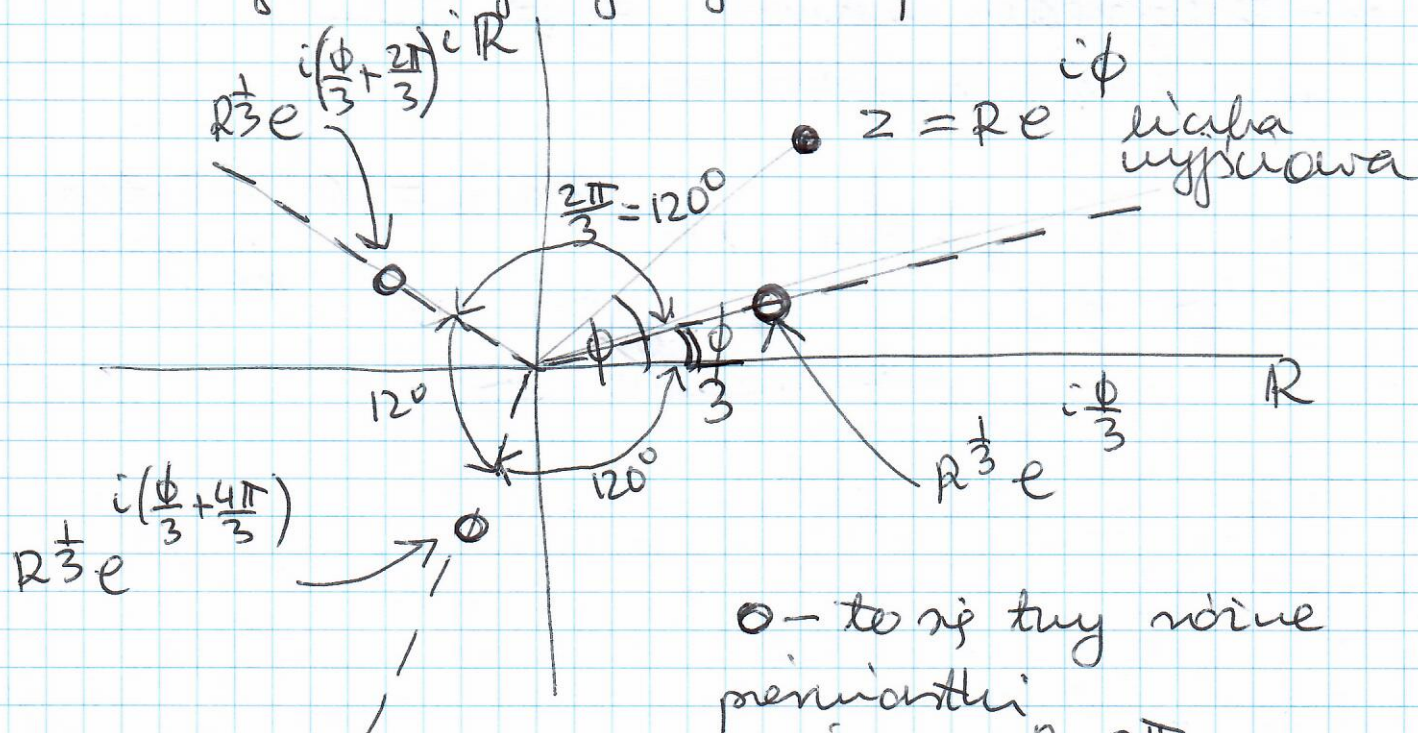 iℝ
R^{1/3} e^{i(ϕ/3 + 2π/3)}
z = R e^{iϕ} liczba
wyjściowa
2π/3 = 120°
ϕ
ϕ/3
ℝ
120
120°
R^{1/3} e^{iϕ/3}
R^{1/3} e^{i(ϕ/3 + 4π/3)}
o – to są trzy różne
pierwiastki